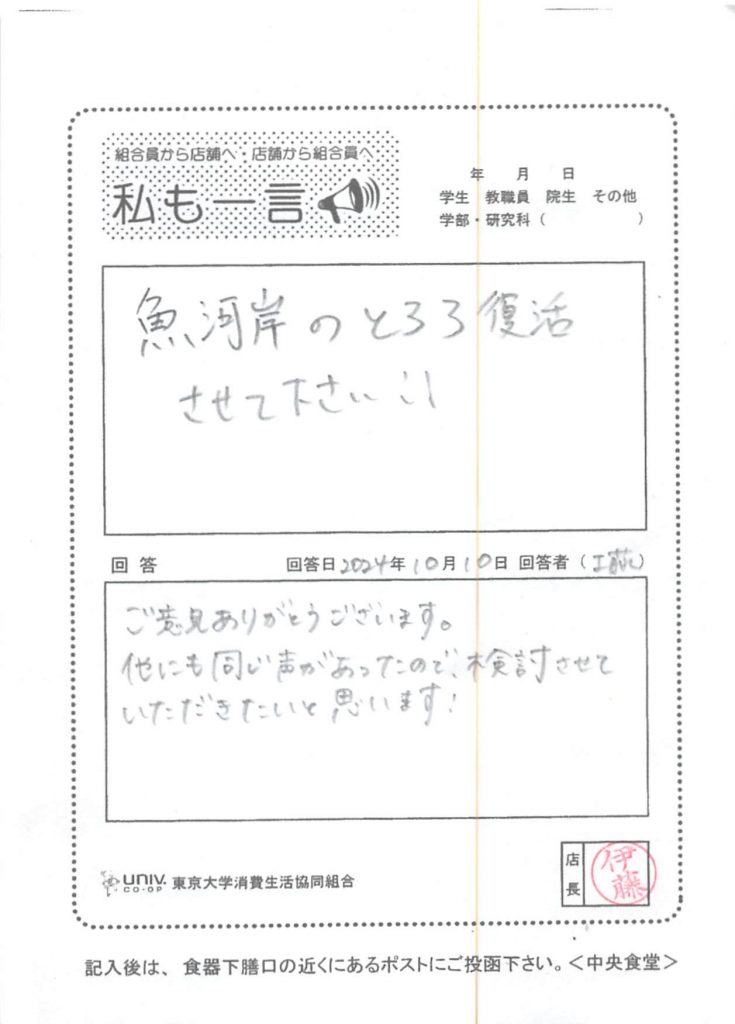 組合員から店舗へ・店舗から組合員へ
私も一言
年 月 日
学生 教職員 院生 その他
学部・研究科（ ）
魚河岸のとろろ復活
させて下さい!!
回答 回答日2024年10月10日 回答者（工藤）
ご意見ありがとうございます。
他にも同じ声があったので、検討させて
いただきたいと思います!
UNIV. CO-OP 東京大学消費生活協同組合
店長
伊藤
記入後は、食器下膳口の近くにあるポストにご投函下さい。＜中央食堂＞